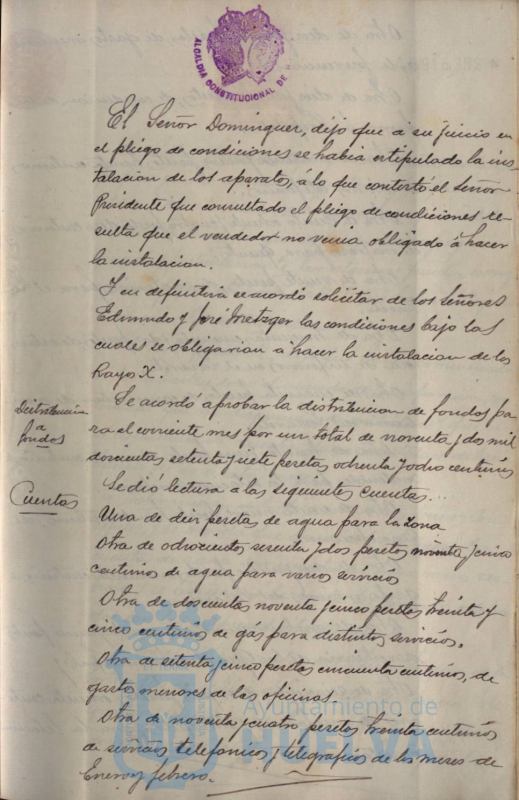 ALCALDIA CONSTITUCIONAL DE
El Señor Dominguez, dijo que á su juicio en
el pliego de condiciones se habia estipulado la ins-
talacion de los aparatos, á lo que contestó el Señor
Presidente que consultado el pliego de condiciones re-
sulta que el vendedor no venia obligado á hacer
la instalacion.
Y en definitiva se acordó solicitar de los Señores
Edmundo y José Metzger las condiciones bajo las
cuales se obligarian á hacer la instalacion de los
Rayos X.
Distribución
a
fondos
Se acordó aprobar la distribucion de fondos pa-
ra el corriente mes por un total de noventa y dos mil
doscientas setenta y siete pesetas ochenta y ocho centimos
Cuentas
Se dió lectura á las siguientes cuentas...
Una de diez pesetas de agua para la zona
Otra de ochocientas sesenta y dos pesetas noventa y cinco
centimos de agua para varios servicios
Otra de doscientas noventa y cinco pesetas treinta y
cinco centimos de gás para distintos servicios.
Otra de setenta y cinco pesetas cincuenta centimos, de
gastos menores de las oficinas
Otra de noventa y cuatro pesetas treinta centimos
de servicios telefonicos y telegraficos de los meses de
Enero y febrero.
Ayuntamiento de
HUELVA